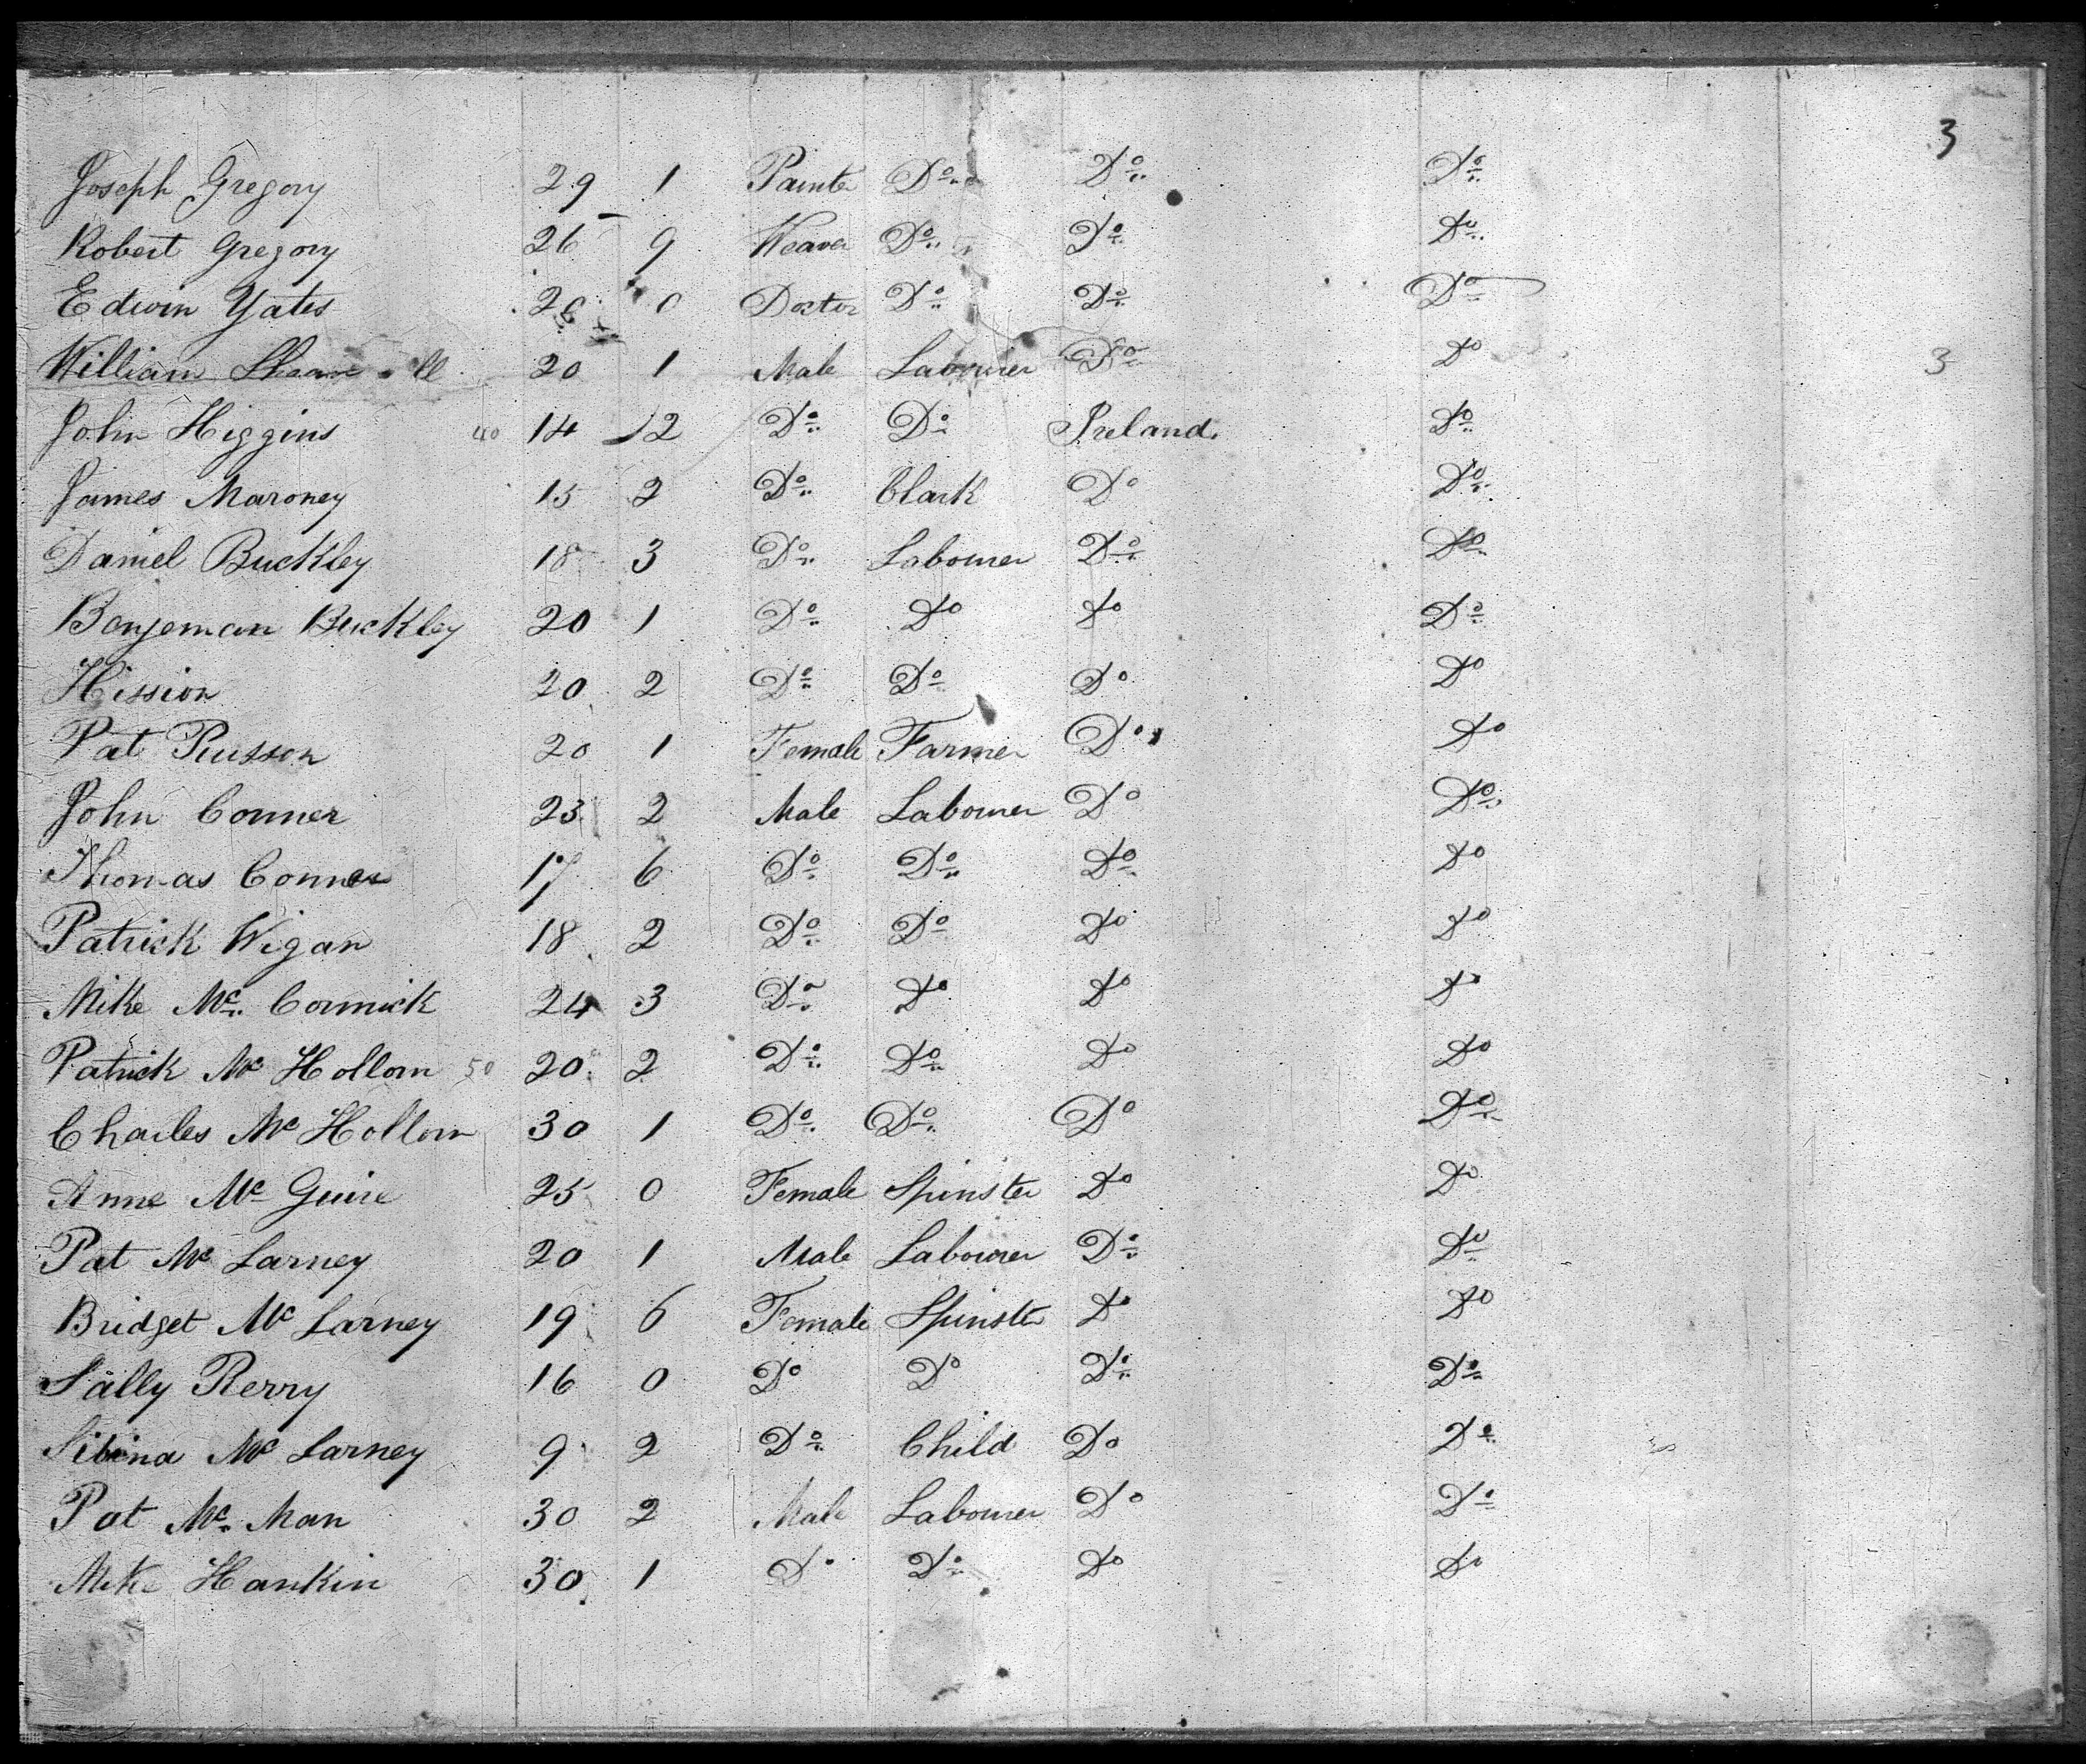 3
Joseph Gregory 29 1 Painter Do Do Do
Robert Gregory 26 9 Weaver Do Do Do
Edwin Yates 26 0 Doctor Do Do Do
William 20 1 Male Labourer Do Do 3
John Higgins 40 14 12 Do Do Ireland. Do
James Maroney 15 2 Do Clark Do Do
Daniel Buckley 18 3 Do Labourer Do Do
Benjeman Buckley 20 1 Do Do Do Do
Hission 20 2 Do Do Do Do
Pat Russon 20 1 Female Farmer Do Do
John Conner 23 2 Male Labourer Do Do
Thomas Conner 17 6 Do Do Do Do
Patrick Wigan 18 2 Do Do Do Do
Mike Mc Cormick 24 3 Do Do Do Do
Patrick Mc Hollom 50 20 2 Do Do Do Do
Charles Mc Hollom 30 1 Do Do Do Do
Anne Mc Guire 25 0 Female Spinster Do Do
Pat Mc Larney 20 1 Male Labourer Do Do
Bridget Mc Larney 19 6 Female Spinster Do Do
Sally Perry 16 0 Do Do Do Do
Sibina Mc Larney 9 2 Do Child Do Do
Pat Mc Man 30 2 Male Labourer Do Do
Mike Hankin 30 1 Do Do Do Do